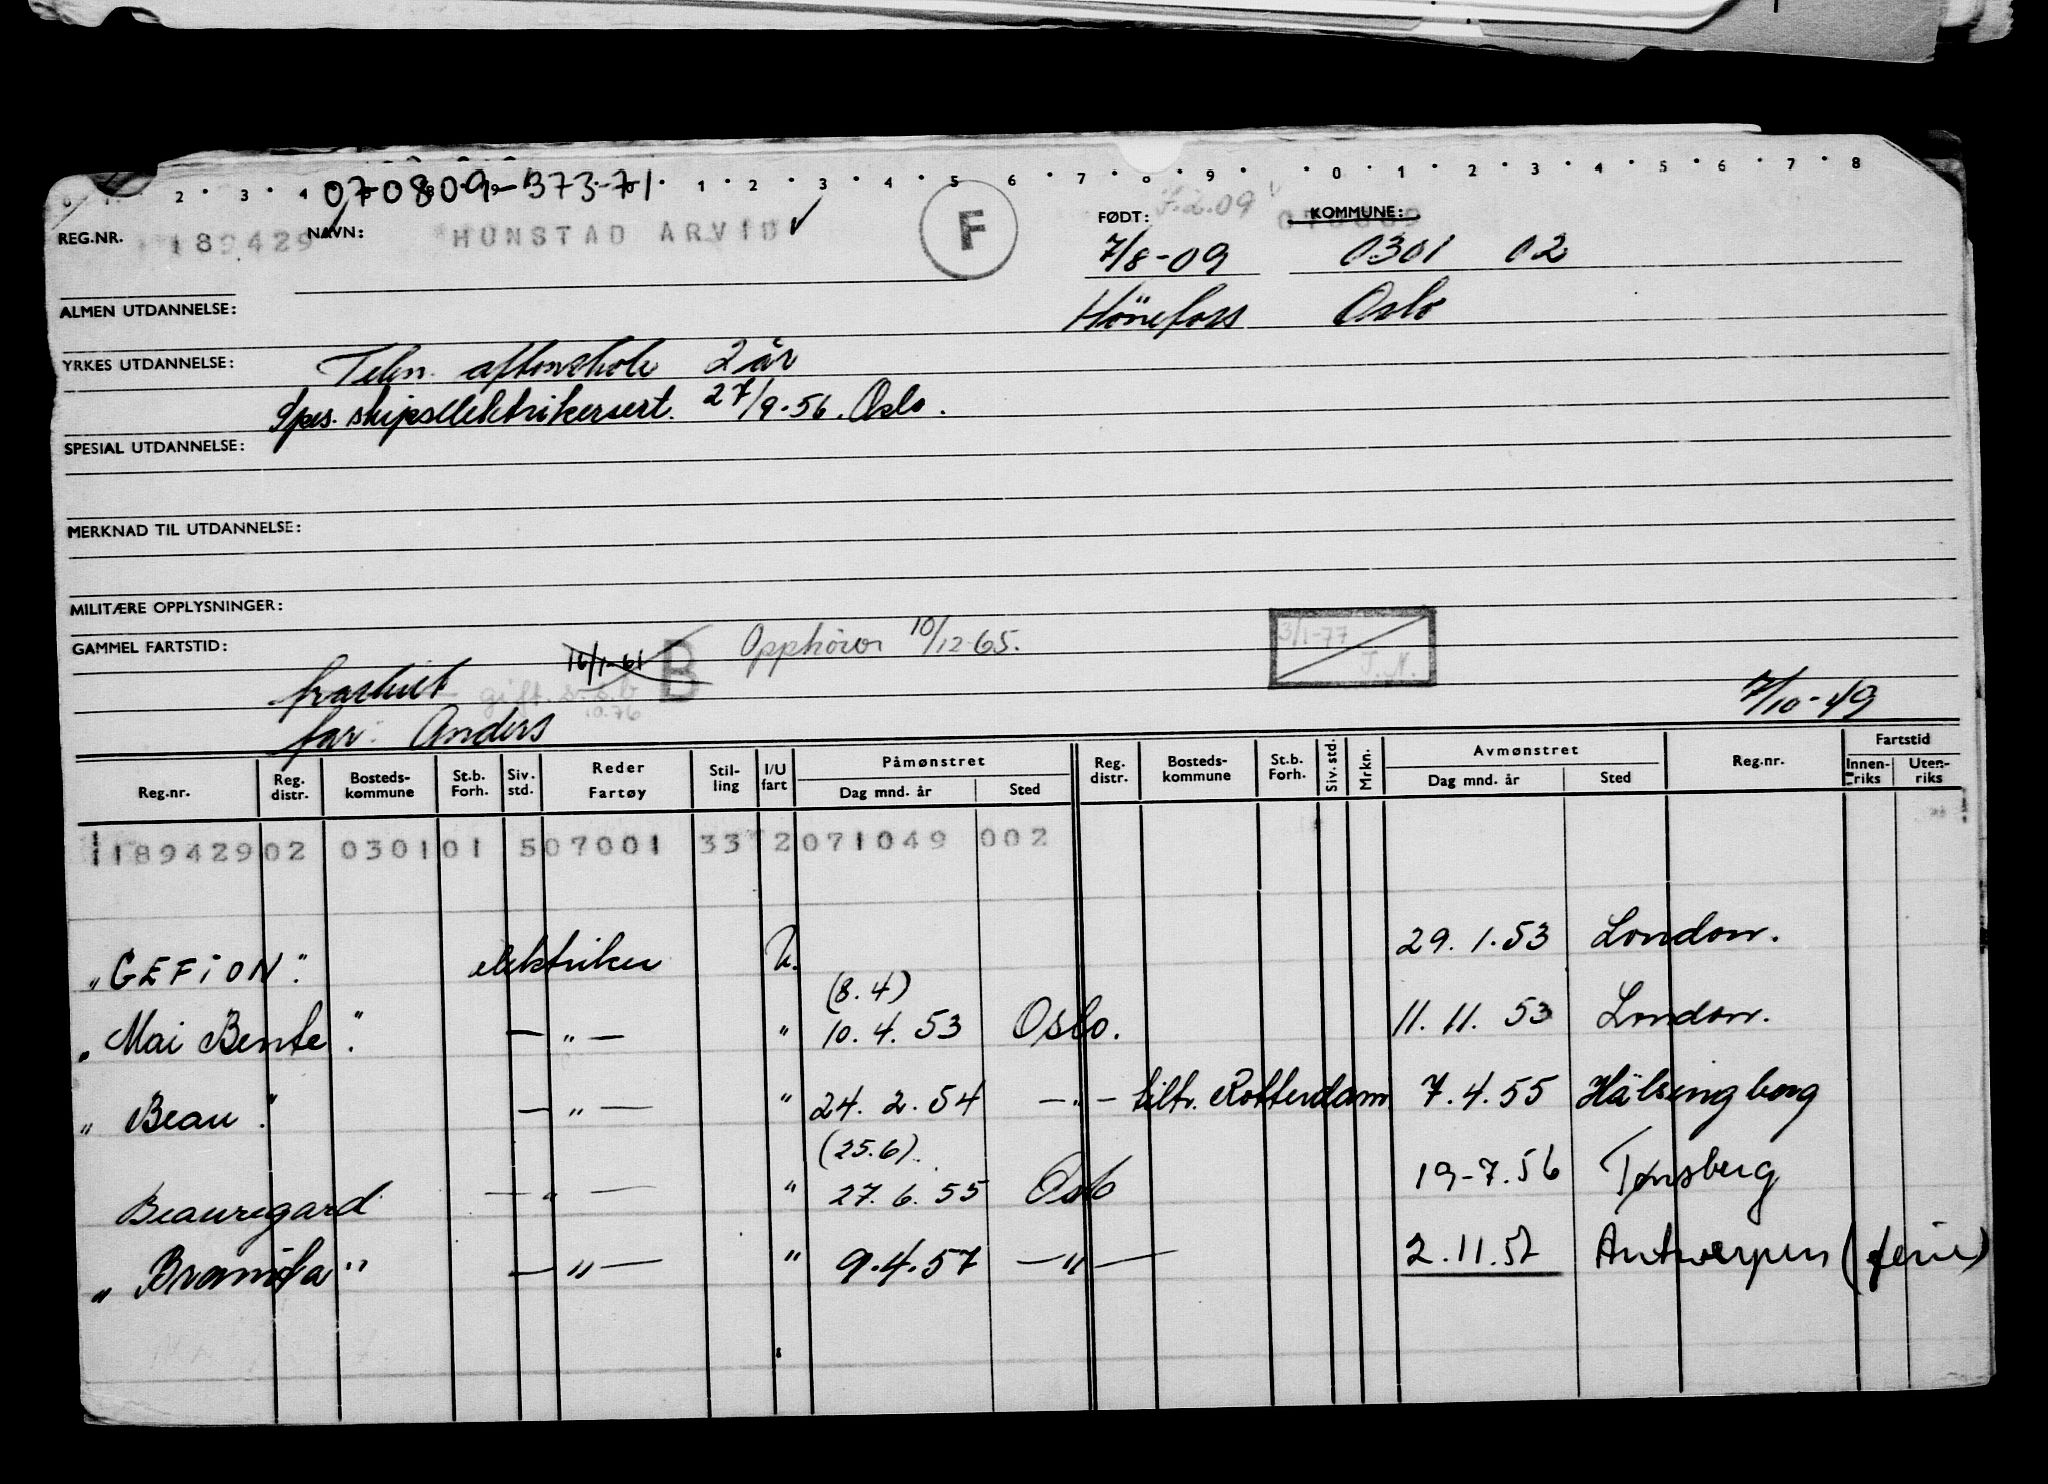 2 3 4 1 2 3 4 5 6 7 8 9 0 1 2 3 4 5 6 7 8
070809-373-71
REG.NR. 189429 NAVN: HUNSTAD ARVID ✓ F FØDT: KOMMUNE:
7/8-09 0301 02
ALMEN UTDANNELSE: Hönefoss Oslo
YRKES UTDANNELSE: Tekn. aftenskole 2 år
Spes. skipselektrikersert. 27/9-56. Oslo.
SPESIAL UTDANNELSE:
MERKNAD TIL UTDANNELSE:
MILITÆRE OPPLYSNINGER:
GAMMEL FARTSTID: 16/1-61 B Opphører 10/12-65. 3/1-77
fraskilt gift. 10.76 7/10-49
far: Anders
Reg.nr. Reg. distr. Bosteds-kommune St.b. Forh. Siv. std. Reder Fartøy Stil-ling I/U fart Påmønstret Dag mnd. år Sted Reg. distr. Bosteds-kommune St.b. Forh. Siv. std. Mrkn. Avmønstret Dag mnd. år Sted Reg.nr. Fartstid Innen-riks Uten-riks
189429 02 0301 01 5 07001 33 2 071049 002
"GEFION". elektriker U. 29.1.53 London.
(8.4)
"Mai Bente". — " — " 10.4.53 Oslo. 11.11.53 London.
"Beau". — " — " 24.2.54 — " — tiltr. Rotterdam 7.4.55 Hälsingborg
(25.6).
Beauregard — " — " 27.6.55 Oslo 19-7.56 Tønsberg
"Bramila" — " — " 9.4.57 — " — 2.11.57 Antwerpen (ferie)